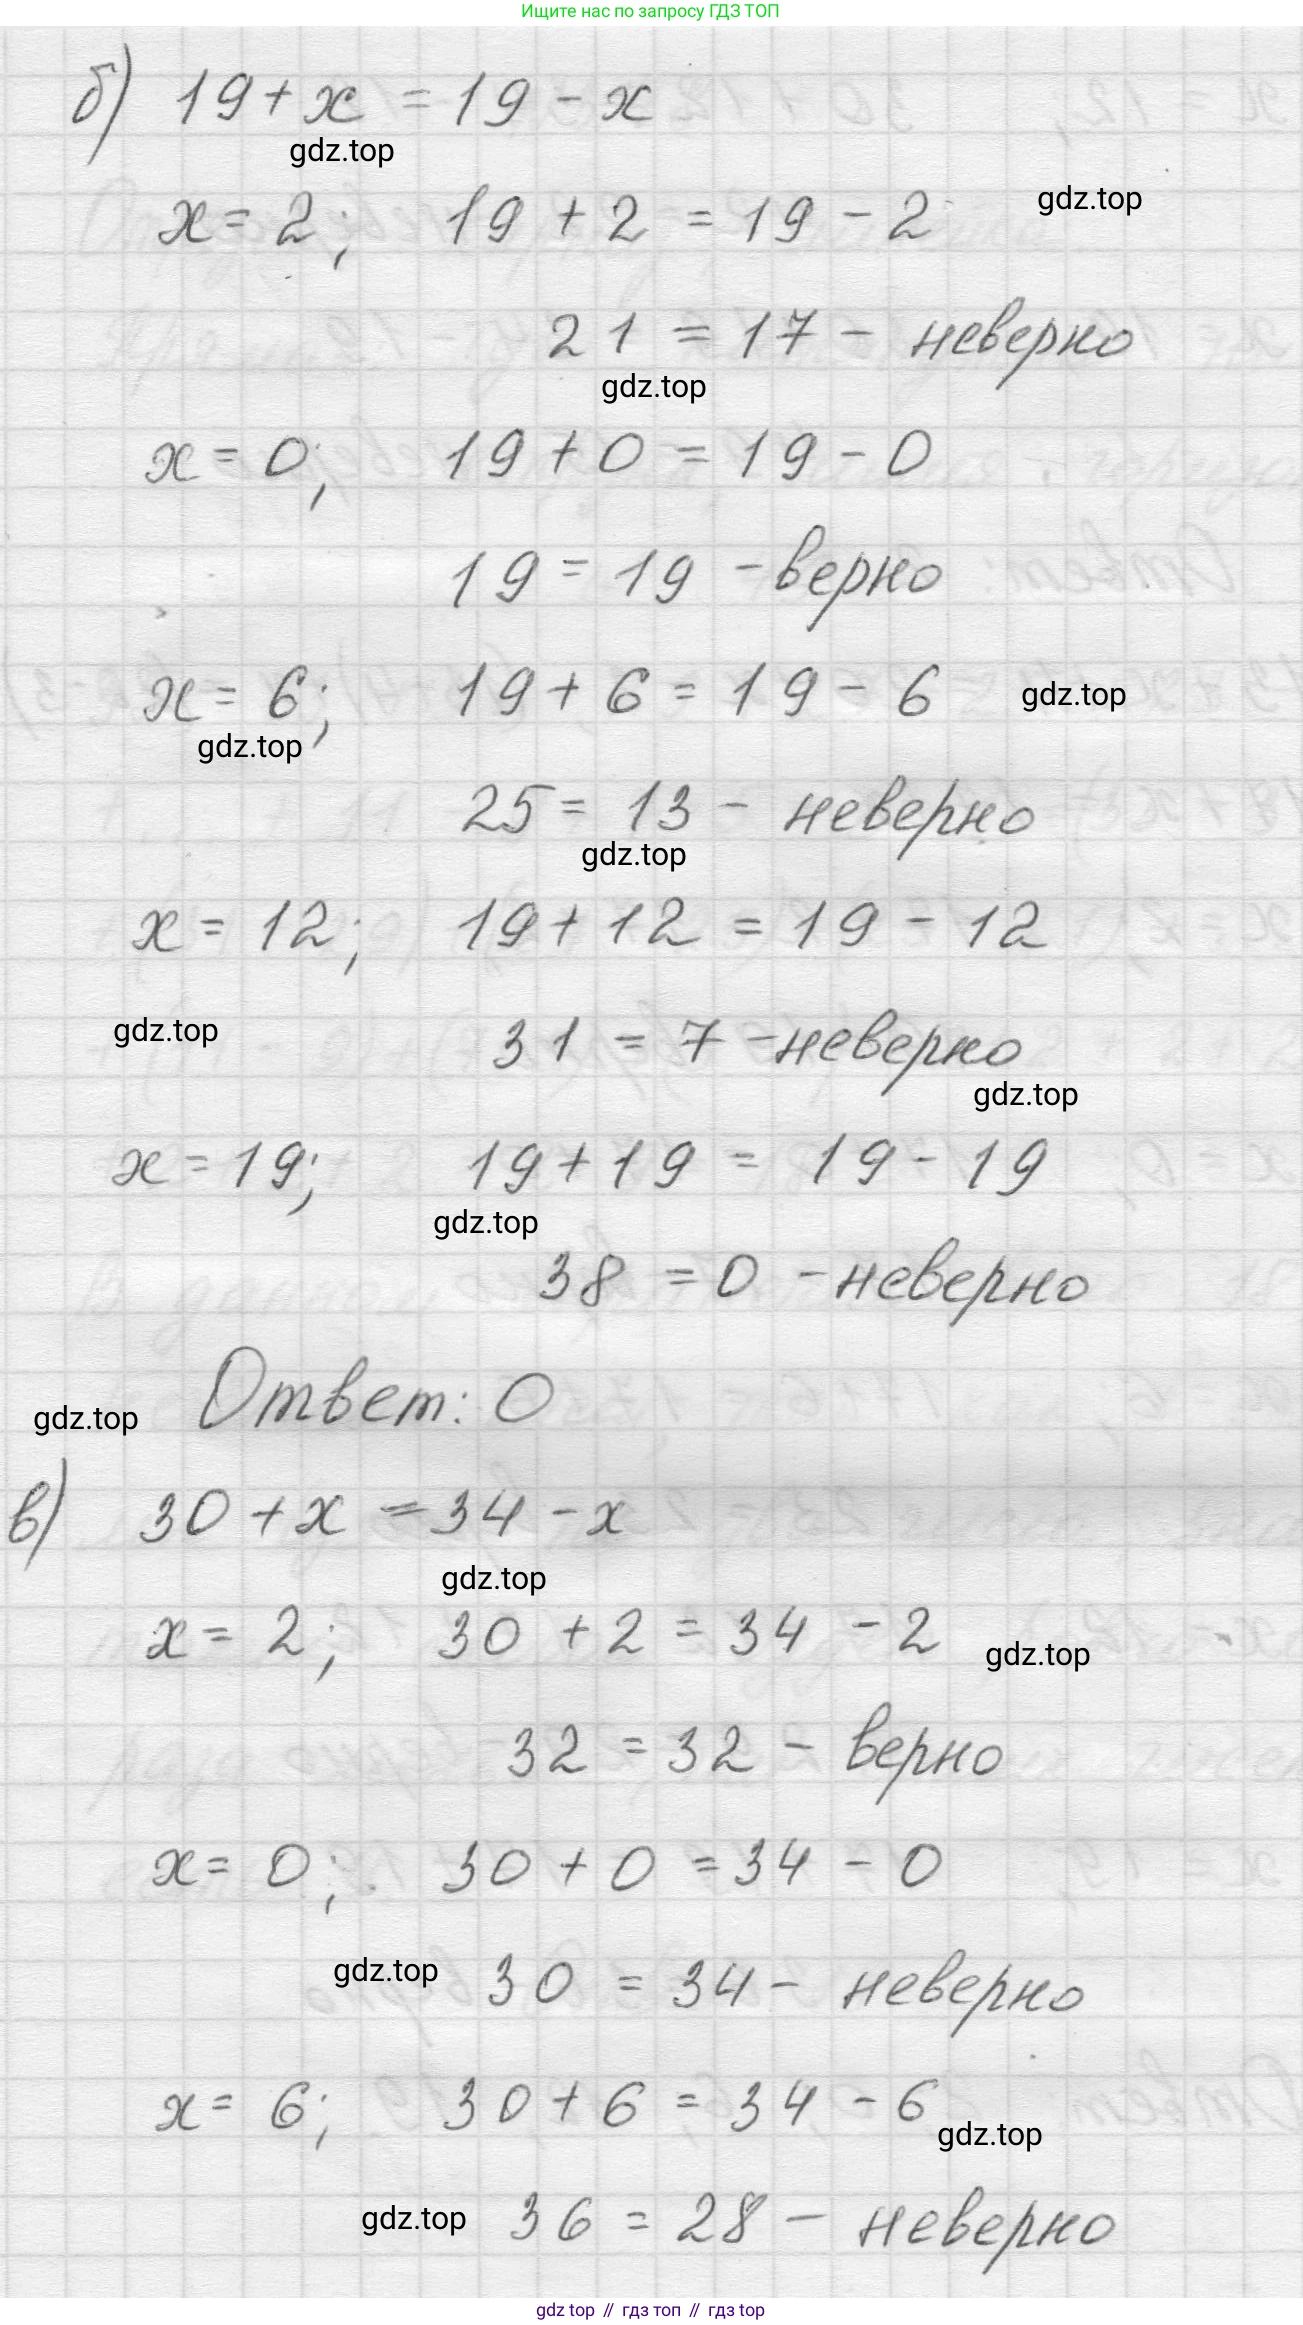 Ищите нас по запросу ГДЗ ТОП
б) 19 + x = 19 - x
gdz.top
x = 2; 19 + 2 = 19 - 2
gdz.top
21 = 17 - неверно
gdz.top
x = 0; 19 + 0 = 19 - 0
19 = 19 - верно
x = 6; 19 + 6 = 19 - 6
gdz.top
gdz.top
25 = 13 - неверно
gdz.top
x = 12; 19 + 12 = 19 - 12
gdz.top
31 = 7 - неверно
gdz.top
x = 19; 19 + 19 = 19 - 19
gdz.top
38 = 0 - неверно
Ответ: 0
gdz.top
в) 30 + x = 34 - x
gdz.top
x = 2; 30 + 2 = 34 - 2
gdz.top
32 = 32 - верно
x = 0; 30 + 0 = 34 - 0
gdz.top
30 = 34 - неверно
x = 6; 30 + 6 = 34 - 6
gdz.top
gdz.top
36 = 28 - неверно
gdz top // гдз топ // гдз top